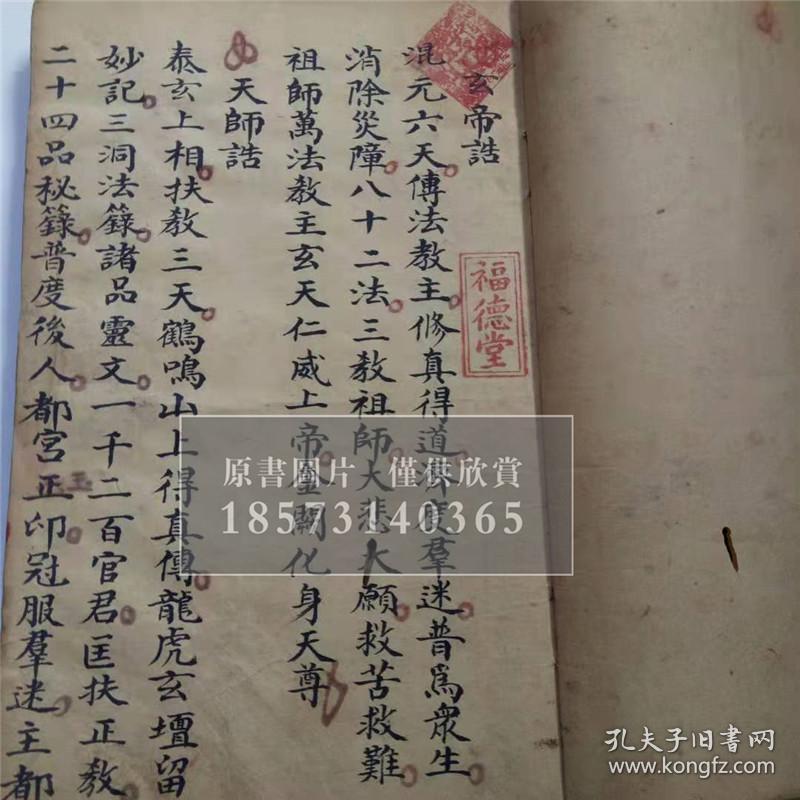 玄帝誥
混元六天傳法教主修真得道濟度羣迷普爲衆生
消除災障八十二法三教祖師大悲大願救苦救難
祖師萬法教主玄天仁威上帝金闕化身天尊
天師誥
泰玄上相扶教三天鶴鳴山上得真傳龍虎玄壇留
妙記三洞法籙諸品靈文一千二百官君匡扶正教
二十四品秘籙普度後人都宮正印冠服羣迷主都
玉
福德堂
原書圖片 僅供欣賞
18573140365
孔夫子旧書网
www.kongfz.com